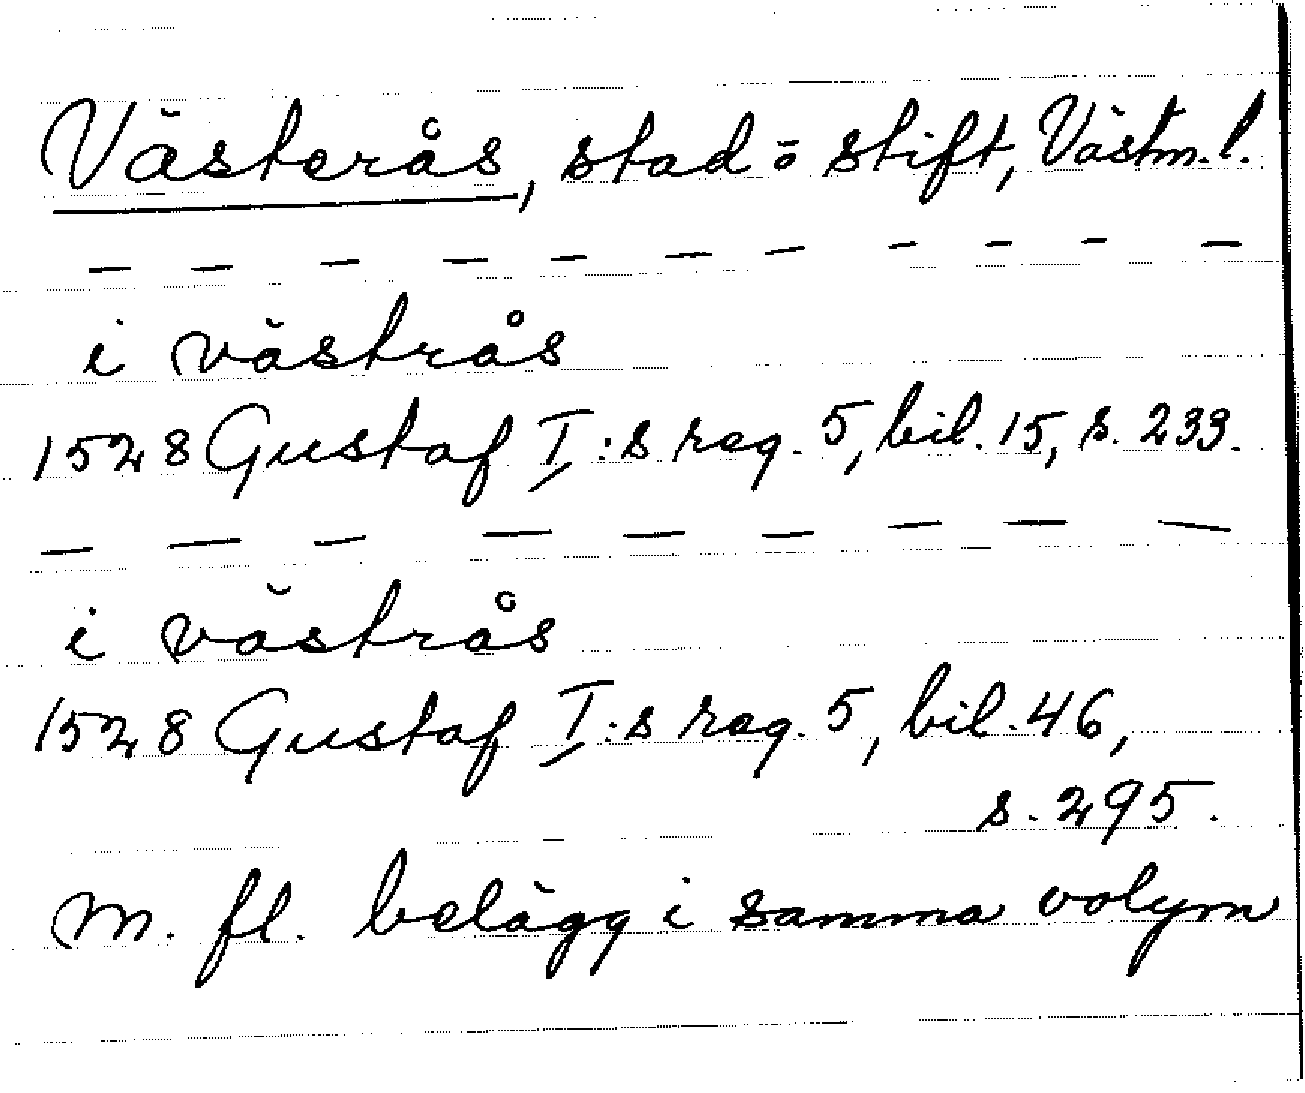 Västerås, stad o stift, Västm. l.
— — — — — — — — — — —
i västrås
1528 Gustaf I:s reg. 5, bil. 15, s. 233.
— — — — — — — — —
i västrås
1528 Gustaf I:s reg. 5, bil. 46,
s. 295.
m. fl. belägg i samma volym